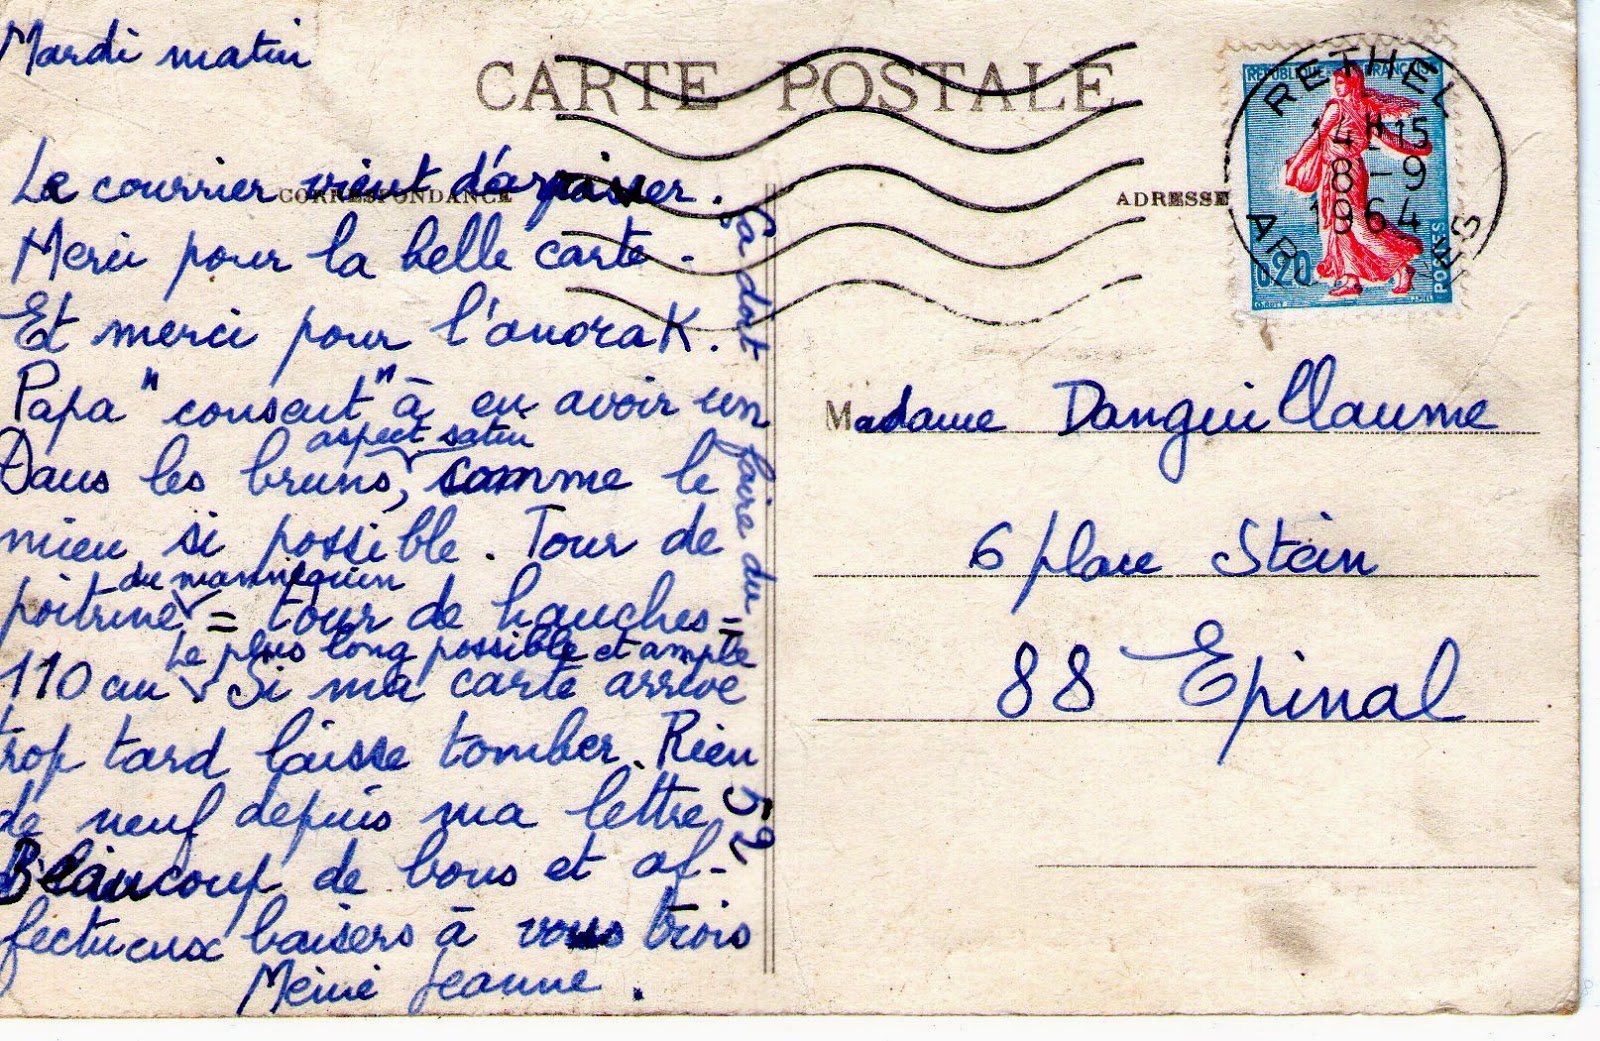 Mardi matin
CARTE POSTALE
CORRESPONDANCE
ADRESSE
RETHEL
14H15
8-9
1964
REPUBLIQUE FRANÇAISE
0,20
POSTES
Le courrier vient de passer.
Merci pour la belle carte.
Et merci pour l'anorak.
Papa "consent" à en avoir un
aspect satin
Dans les bruns, comme le
mien si possible. Tour de
du mannequin
poitrine = tour de hanches =
Le plus long possible et ample
110 cm Si ma carte arrive
trop tard laisse tomber. Rien
de neuf depuis ma lettre
Beaucoup de bons et af-
fectueux baisers à vous trois
Mémé Jeanne.
ça doit faire du 52
Madame Danguillaume
6 place Stein
88 Epinal